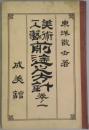 東洋散士著
美術
工藝
前途之方針
卷一
成美館